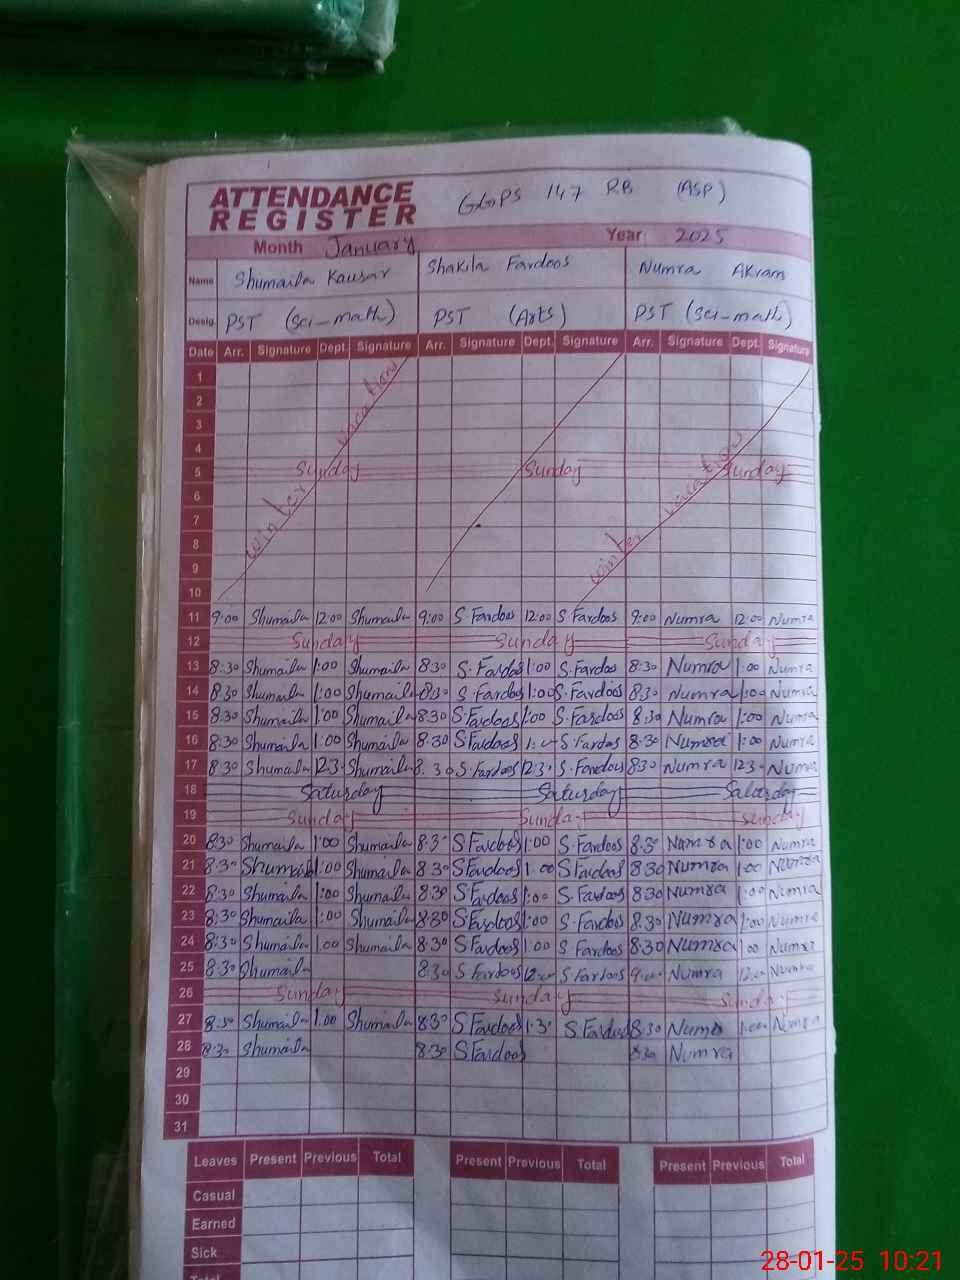 ATTENDANCE REGISTER GGPS 147 RB (ASP)
Month January Year 2025
Name Shumaila Kausar Shakila Fardoos Numra Akram
Desig. PST (Sci-math) PST (Arts) PST (Sci-math)
Date Arr. Signature Dept. Signature Arr. Signature Dept. Signature Arr. Signature Dept. Signature
winter vacation
winter vacation
1
2
3
4
5 Sunday Sunday Sunday
6
7
8
9
10
11 9:00 Shumaila 12:00 Shumaila 9:00 S.Fardoos 12:00 S.Fardoos 9:00 Numra 12:00 Numra
12 Sunday Sunday Sunday
13 8:30 Shumaila 1:00 Shumaila 8:30 S.Fardoos 1:00 S.Fardoos 8:30 Numra 1:00 Numra
14 8:30 Shumaila 1:00 Shumaila 8:30 S.Fardoos 1:00 S.Fardoos 8:30 Numra 1:00 Numra
15 8:30 Shumaila 1:00 Shumaila 8:30 S.Fardoos 1:00 S.Fardoos 8:30 Numra 1:00 Numra
16 8:30 Shumaila 1:00 Shumaila 8:30 S.Fardoos S.Fardos 8:30 Numra 1:00 Numra
17 8:30 Shumaila 12:30 Shumaila 8:30 S.Fardoos 12:30 S.Fardous 8:30 Numra 12:30 Numra
18 Saturday Saturday Saturday
19 Sunday Sunday Sunday
20 8:30 Shumaila 1:00 Shumaila 8:30 S.Fardoos 1:00 S.Fardoos 8:30 Numra 1:00 Numra
21 8:30 Shumaila 1:00 Shumaila 8:30 S.Fardoos 1:00 S.Fardoos 8:30 Numra 1:00 Numra
22 8:30 Shumaila 1:00 Shumaila 8:30 S.Fardoos 1:00 S.Fardoos 8:30 Numra 1:00 Numra
23 8:30 Shumaila 1:00 Shumaila 8:30 S.Fardoos 1:00 S.Fardoos 8:30 Numra 1:00 Numra
24 8:30 Shumaila 1:00 Shumaila 8:30 S.Fardoos 1:00 S.Fardoos 8:30 Numra 1:00 Numra
25 8:30 Shumaila 8:30 S.Fardoos 12:00 S.Fardoos 9:00 Numra 12:00 Numra
26 Sunday Sunday Sunday
27 8:30 Shumaila 1:00 Shumaila 8:30 S.Fardoos 1:30 S.Fardoos 8:30 Numra 1:00 Numra
28 8:30 Shumaila 8:30 S.Fardoos 8:30 Numra
29
30
31
Leaves Present Previous Total Present Previous Total Present Previous Total
Casual
Earned
Sick
Total
28-01-25 10:21